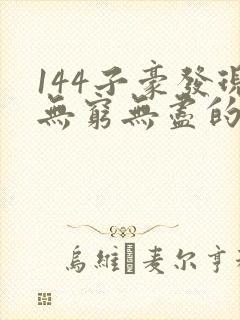 144子豪發現
無窮無盡的
烏維 麦尔亨